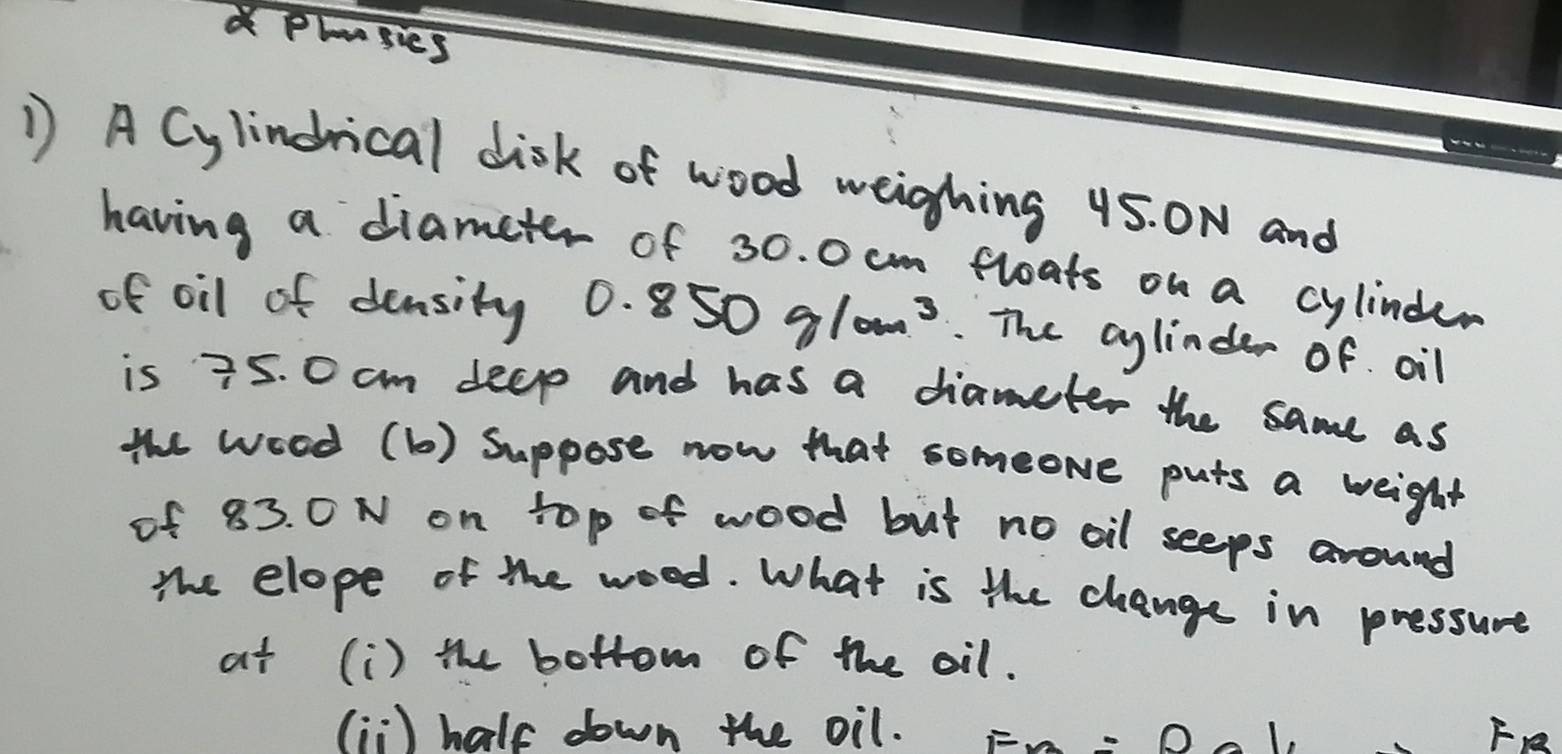 & Phusics
1) A Cylindrical disk of wood weighing 45.0N and
having a diameter of 30.0 cm floats on a cylinder
of oil of density 0.850 g/cm³. The cylinder of oil
is 75.0 cm deep and has a diameter the same as
the wood (b) Suppose now that someone puts a weight
of 83.0 N on top of wood but no oil seeps around
the elope of the wood. What is the change in pressure
at (i) the bottom of the oil.
(ii) half down the oil.